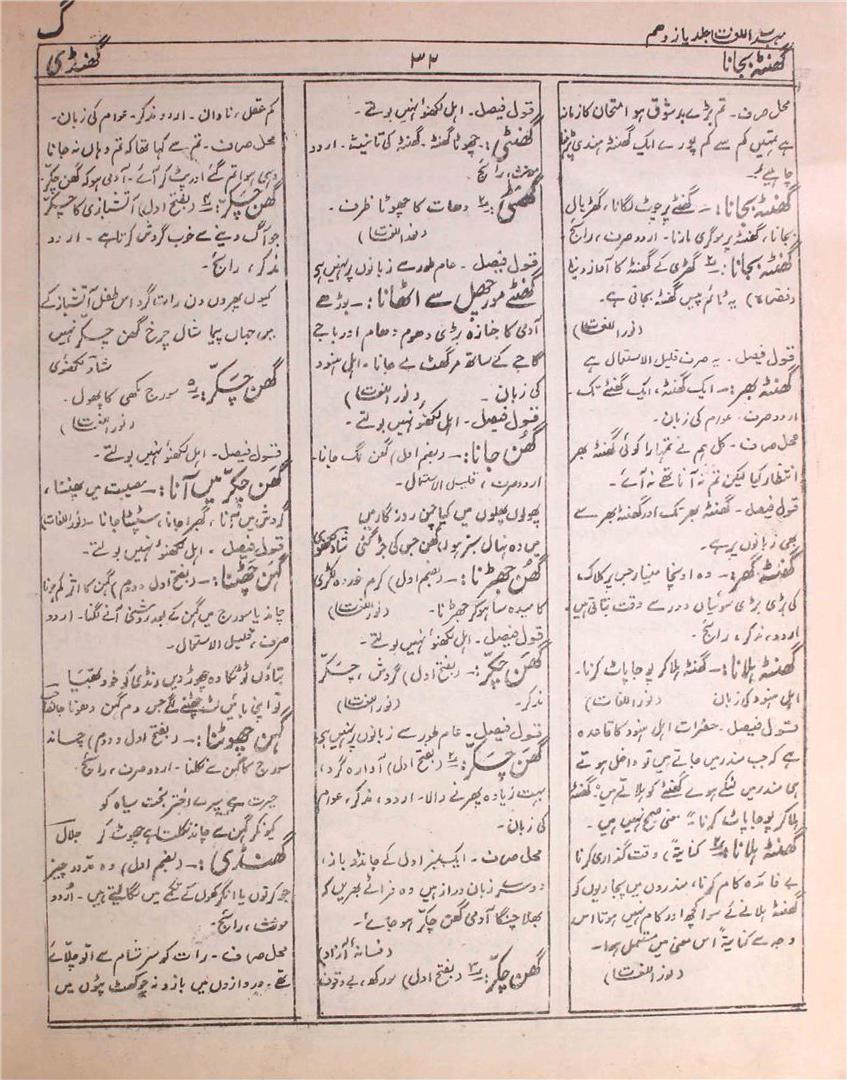 گ
مہذب اللغات جلد یازدہم
گھنٹہ بجانا
۳۲
گھنڈی
محل صرف۔ تم بڑے بد شوق ہو امتحان کا زمانہ
ہے تمہیں کم سے کم پورے ایک گھنٹہ ہندی پڑھنا
چاہیے۔
گھنٹہ بجانا :۔ گھنٹے پر چوٹ لگانا، گھڑیالی
بجانا، گھنٹہ پر موگری مارنا۔ اردو صرف، رائج
گھنٹہ بجانا :۔ ۲ گھڑی کے گھنٹہ کا آواز دینا
(فقرہ) یہ ٹائم پیس گھنٹہ بجاتی ہے۔
(نور اللغات)
قول فیصل۔ یہ صرف قلیل الاستعمال ہے
گھنٹہ بھر :۔ ایک گھنٹہ، ایک گھنٹے تک۔
اردو صرف۔ عوام کی زبان۔
محل صرف۔ کل ہم نے تمہارا کوئی گھنٹہ بھر
انتظار کیا لیکن تم نہ آنا تھے نہ آئے۔
قول فیصل۔ گھنٹہ بھر تک اور گھنٹہ بھر سے
بھی زبانوں پر ہے۔
گھنٹہ گھر :۔ وہ اونچا مینار جس پر کلاک،
کی بڑی بڑی سوئیاں دور سے وقت بتاتی ہیں
اردو، مذکر، رائج۔
گھنٹہ ہلانا :۔ گھنٹہ ہلا کر پوجا پاٹ کرنا۔
اہل ہنود کی زبان (نور اللغات)
قول فیصل۔ حضرات اہل ہنود کا قاعدہ
ہے کہ جب مندر میں جاتے ہیں تو داخل ہوتے
ہی مندر میں لٹکے ہوے گھنٹے کو ہلاتے ہیں "گھنٹہ
ہلا کر پوجا پاٹ کرنا" معنی صحیح نہیں ہیں۔
گھنٹہ ہلانا :۔ ۲ کنایۃً، وقت گذاری کرنا
بے فائدہ کام کرنا، مندروں میں پجاریوں کو
گھنٹہ ہلانے کے سوا کچھ اور کام نہیں ہوتا اس
وجہ سے کنایۃً اس معنی میں مستعمل ہوا۔
(نور اللغات)
قول فیصل۔ اہل لکھنؤ نہیں بولتے۔
گھنٹی :۔ چھوٹا گھنٹہ۔ گھنٹہ کی تانیث۔ اردو
مونث، رائج۔
گھنٹی :۔ ۲ دھات کا چھوٹا ظرف۔
(نور اللغات)
قول فیصل۔ عام طور سے زبانوں پر نہیں ہے
گھنٹے مورچھل سے اٹھانا :۔ بڈھے
آدمی کا جنازہ بڑی دھوم دھام اور باجے
گاجے کے ساتھ مرگھٹ لے جانا۔ اہل ہنود
کی زبان۔ (نور اللغات)
قول فیصل۔ اہل لکھنؤ نہیں بولتے۔
گھُن جانا :۔ (بضم اول) گھن لگ جانا۔
اردو صرف، قلیل الاستعمال۔
پھولوں پھلوں میں کیا چمن روزگار میں
میں وہ نہال سبز ہوا گھن جس کی جڑ گئی شاد لکھنوی
گھُن جھڑنا :۔ (بضم اول) کرم خوردہ لکڑی
کا میدہ سا ہو کر جھڑنا۔ (نور اللغات)
قول فیصل۔ اہل لکھنؤ نہیں بولتے۔
گھَن چکّر :۔ (بفتح اول) گردش، چکر
مذکر۔ (نور اللغات)
قول فیصل۔ عام طور سے زبانوں پر نہیں ہے
گھَن چکّر :۔ ۲ (بفتح اول) آوارہ گرد،
بہت زیادہ پھرنے والا۔ اردو، مذکر، عوام
کی زبان۔
محل صرف۔ ایک نمبر اول کے چانڈو باز،
دوسرے زبان دراز ہیں وہ فراٹے بھریں کہ
بھلا چنگا آدمی گھن چکر ہو جائے۔
(فسانہ آزاد)
گھَن چکّر :۔ ۳ (بفتح اول) مورکھ، بیوقوف
کم عقل، نادان۔ اردو مذکر۔ عوام کی زبان۔
محل صرف۔ تم سے کہا تھا کہ تم وہاں نہ جانا
وہی ہوا تم گئے اور پٹ کر آئے۔ آدمی ہو کہ گھن چکر
گھَن چکّر :۔ ۴ (بفتح اول) آتشبازی کا چکر
جو آگ دینے سے خوب گردش کرتا ہے۔ اردو
مذکر، رائج۔
کیوں پھروں دن رات گرد اس طفل آتشباز کے
ہیں جہاں پیما مثال چرخ گھن چکر نہیں
شاد لکھنوی
گھَن چکّر :۔ ۵ سورج مکھی کا پھول۔
(نور اللغات)
قول فیصل۔ اہل لکھنؤ نہیں بولتے۔
گھَن چکّر میں آنا :۔ مصیبت میں پھنسنا،
گردش میں آنا، گھبرا جانا، سٹپٹا جانا۔ (نور اللغات)
قول فیصل۔ اہل لکھنؤ نہیں بولتے۔
گہن چھٹنا :۔ (بفتح اول و دوم) گہن کا اثر کم ہونا
چاند یا سورج میں گہن کے بعد روشنی آنے لگنا۔ اردو
صرف، قلیل الاستعمال۔
بتاؤں ٹوٹکا وہ چھوڑ دیں رنڈی کو خود بھیا
تو اپنی بائیں لٹ چھٹنے لگے جس دم گہن دھونا جانصاحب
گہن چھوٹنا :۔ (بفتح اول و دوم) چاند
سورج کا گہن سے نکلنا۔ اردو صرف، رائج۔
حیرت ہے میرے اختر بخت سیاہ کو
کیونکر گہن سے چاند نکلتا ہے چھوٹ کر جلال
گھُنڈی :۔ (بضم اول) وہ مدور چیز
جو کرتوں یا انگرکھوں کے تکمے میں لگا لیتے ہیں۔ اردو
مونث، رائج۔
محل صرف۔ رات کو سر شام سے الّو چلائے
تھے۔ دروازوں میں بازو نہ چوکھٹ پٹوں میں